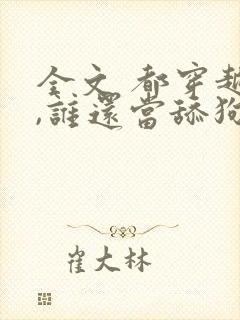 全文 都穿越
,誰還當舔狗
崔大林